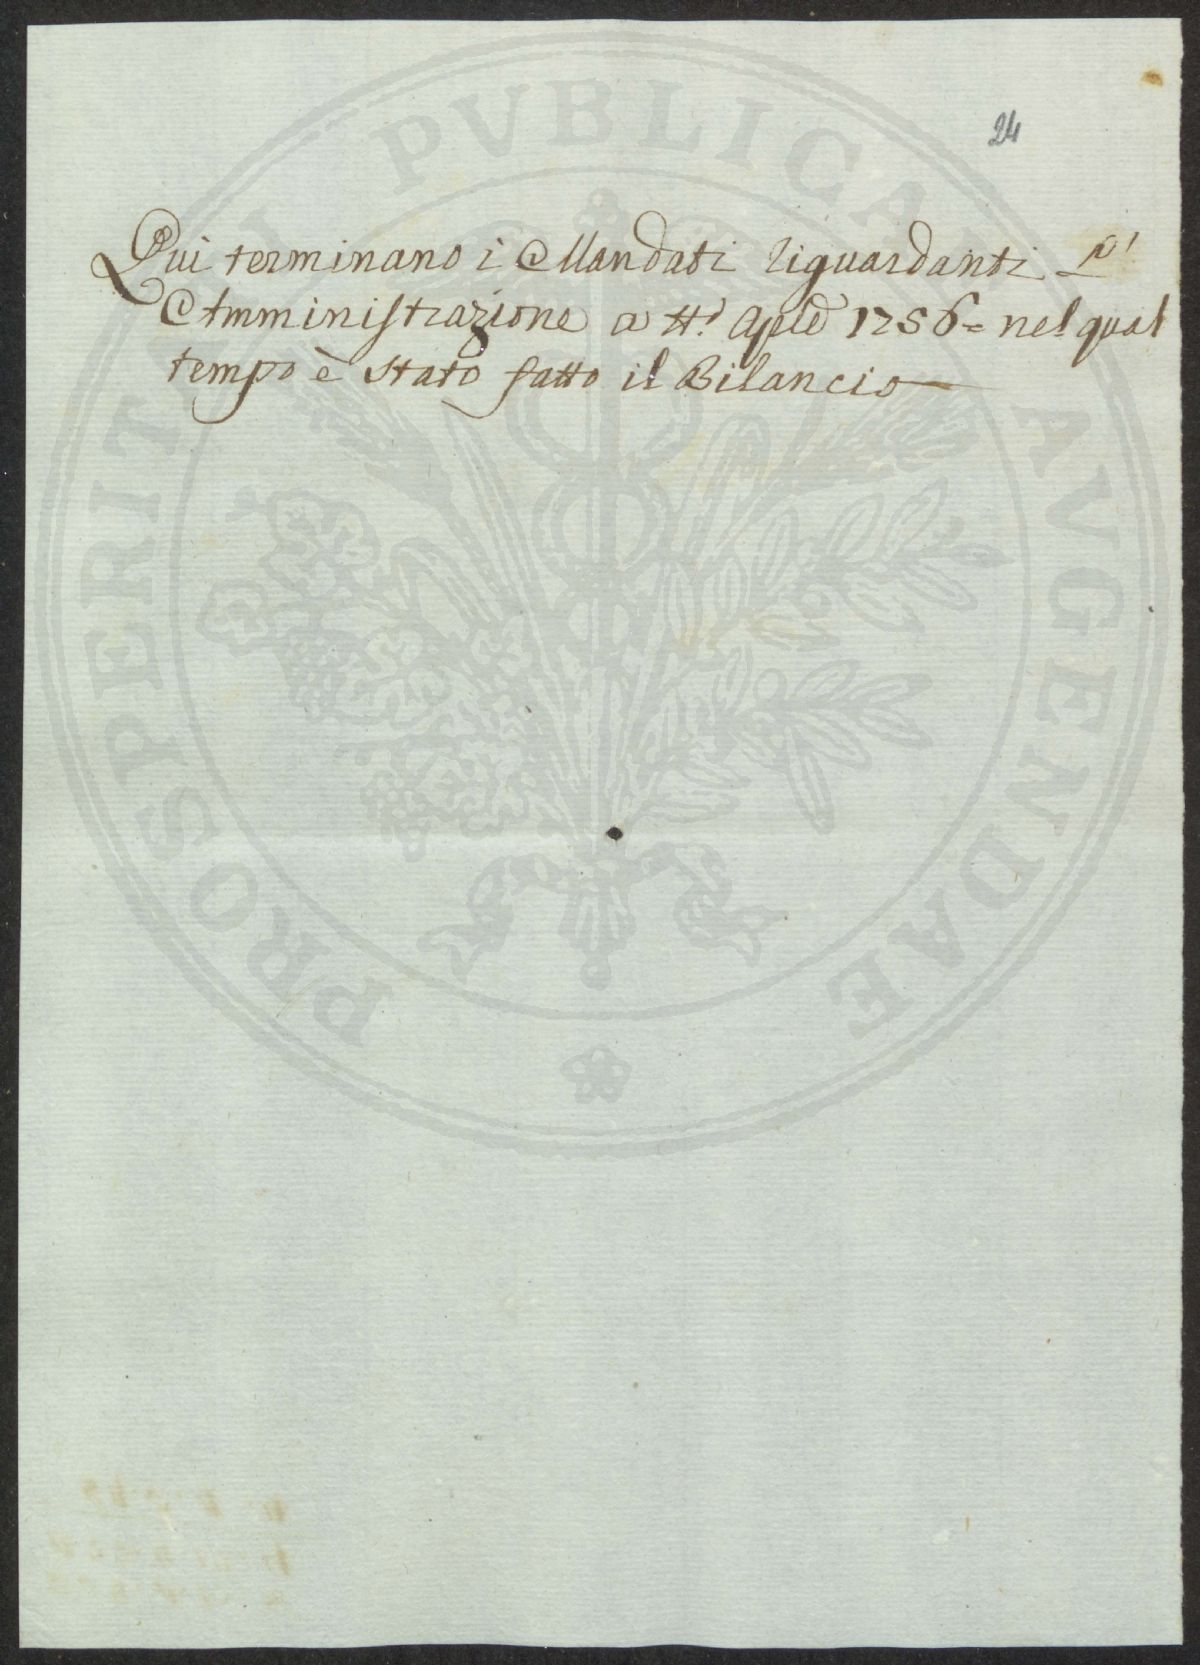 24
Qui terminano i Mandati riguardanti l'
Amministrazione a tt.º Aple 1756 = nel qual
tempo è stato fatto il Bilancio
PROSPERITATI PVBLICAE AVGENDAE